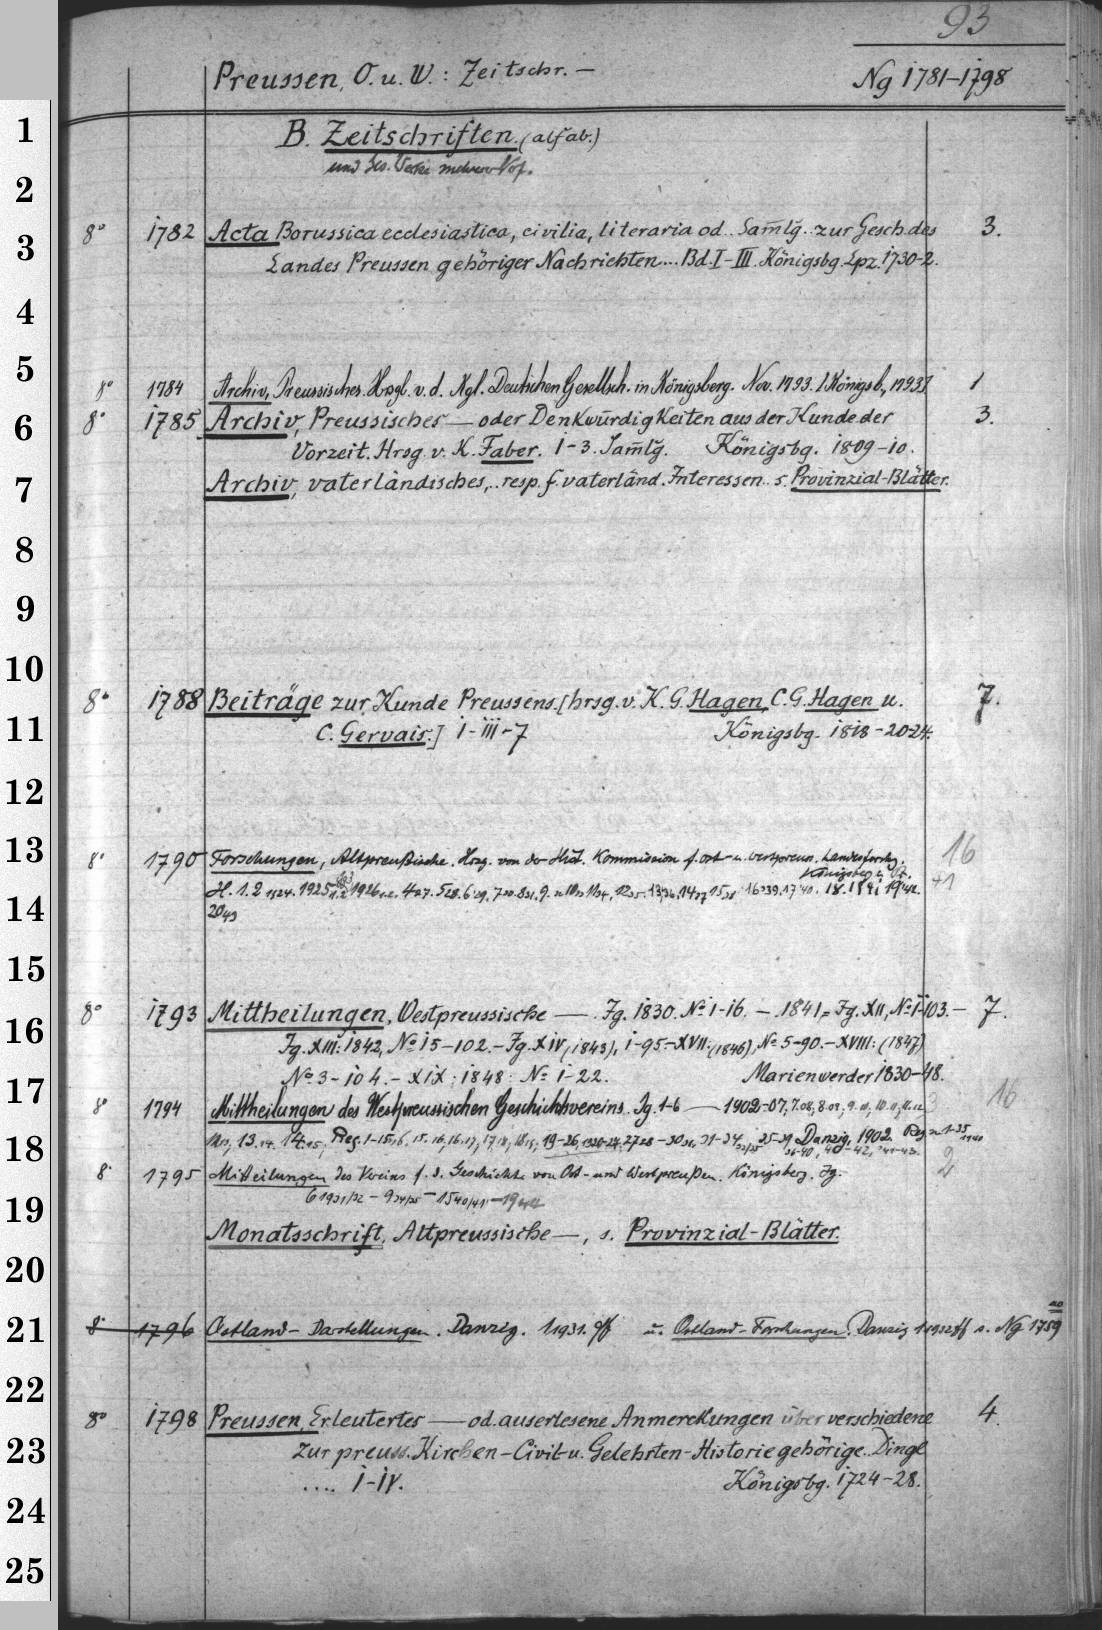 93
Preussen, O. u. W.: Zeitschr. —
Ng 1781–1798
B. Zeitschriften (alfab.)
und Ges. Werke mehrerer Vf.
8° 1782 Acta Borussica ecclesiastica, civilia, literaria od.. Sam̅lg̅.. zur Gesch. des 3.
Landes Preussen gehöriger Nachrichten... Bd. I–III. Königsbg. Lpz. 1730–2.
8° 1784 Archiv, Preussisches. Hrsg. v. d. Kgl. Deutschen Gesellsch. in Königsberg. Nov. 1793. [Königsb., 1793] 1
8° 1785 Archiv, Preussisches — oder Denkwürdigkeiten aus der Kunde der 3.
Vorzeit. Hrsg. v. K. Faber. 1–3. Sam̅lg̅. Königsbg. 1809–10.
Archiv, vaterländisches,.. resp. f. vaterländ. Interessen.. s. Provinzial-Blätter.
8° 1788 Beiträge zur Kunde Preussens. [hrsg. v. K. G. Hagen, C. G. Hagen u. 7.
C. Gervais.] I–III–7 Königsbg. 1818–20–24.
8° 1790 Forschungen, Altpreußische. Hrsg. von der Hist. Kommission f. ost- u. westpreuss. Landesforschg. 16
Königsberg i. Pr. +1
H. 1. 2 1924. 1925
20 43
8° 1793 Mittheilungen, Westpreussische — . Jg. 1830. No 1–16. — 1841 = Jg. XII, No 1–103. — 7.
Jg. XIII: 1842, No 15–102. – Jg. XIV (1843), 1–95. – XVII: (1846), No 5–90. – XVIII: (1847)
No 3–104. – XIX: 1848: No 1–22. Marienwerder 1830–48.
8° 1794 Mittheilungen des Westpreussischen Geschichtsvereins. Jg. 1–6 — 1902–07, 7.08, 8.09, 9.10, 10.11, 11.12 16
13.14. 14.15, Reg. 1–15, Danzig, 1902.
8° 1795 Mitteilungen des Vereins f. d. Geschichte von Ost- und Westpreußen. Königsberg. Jg. 2
6 1931/32 – 9 34/35 – 15 40/41 – 1944
Monatsschrift, Altpreussische —, s. Provinzial-Blätter.
8° 1796 Ostland-Darstellungen. Danzig. 1 1931. ff u. Ostland-Forschungen. Danzig 1 1932 ff s. Ng 1759
8° 1798 Preussen, Erleutertes — od. auserlesene Anmerckungen über verschiedene 4.
zur preuss. Kirchen-Civit- u. Gelehrten-Historie gehörige. Dinge
.... I–IV. Königsbg. 1724–28.
1
2
3
4
5
6
7
8
9
10
11
12
13
14
15
16
17
18
19
20
21
22
23
24
25